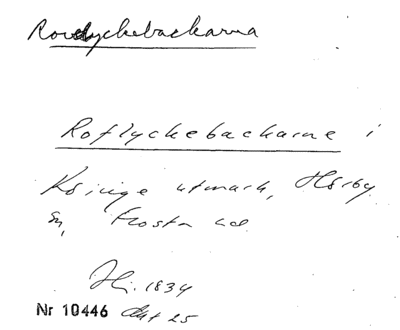 Rovdyckebackarna
Roflyckebackarne i
Köinge utmark, Hörby
sn, Frosta hd.
Hi. 1834
Nr 10446 Akt 25